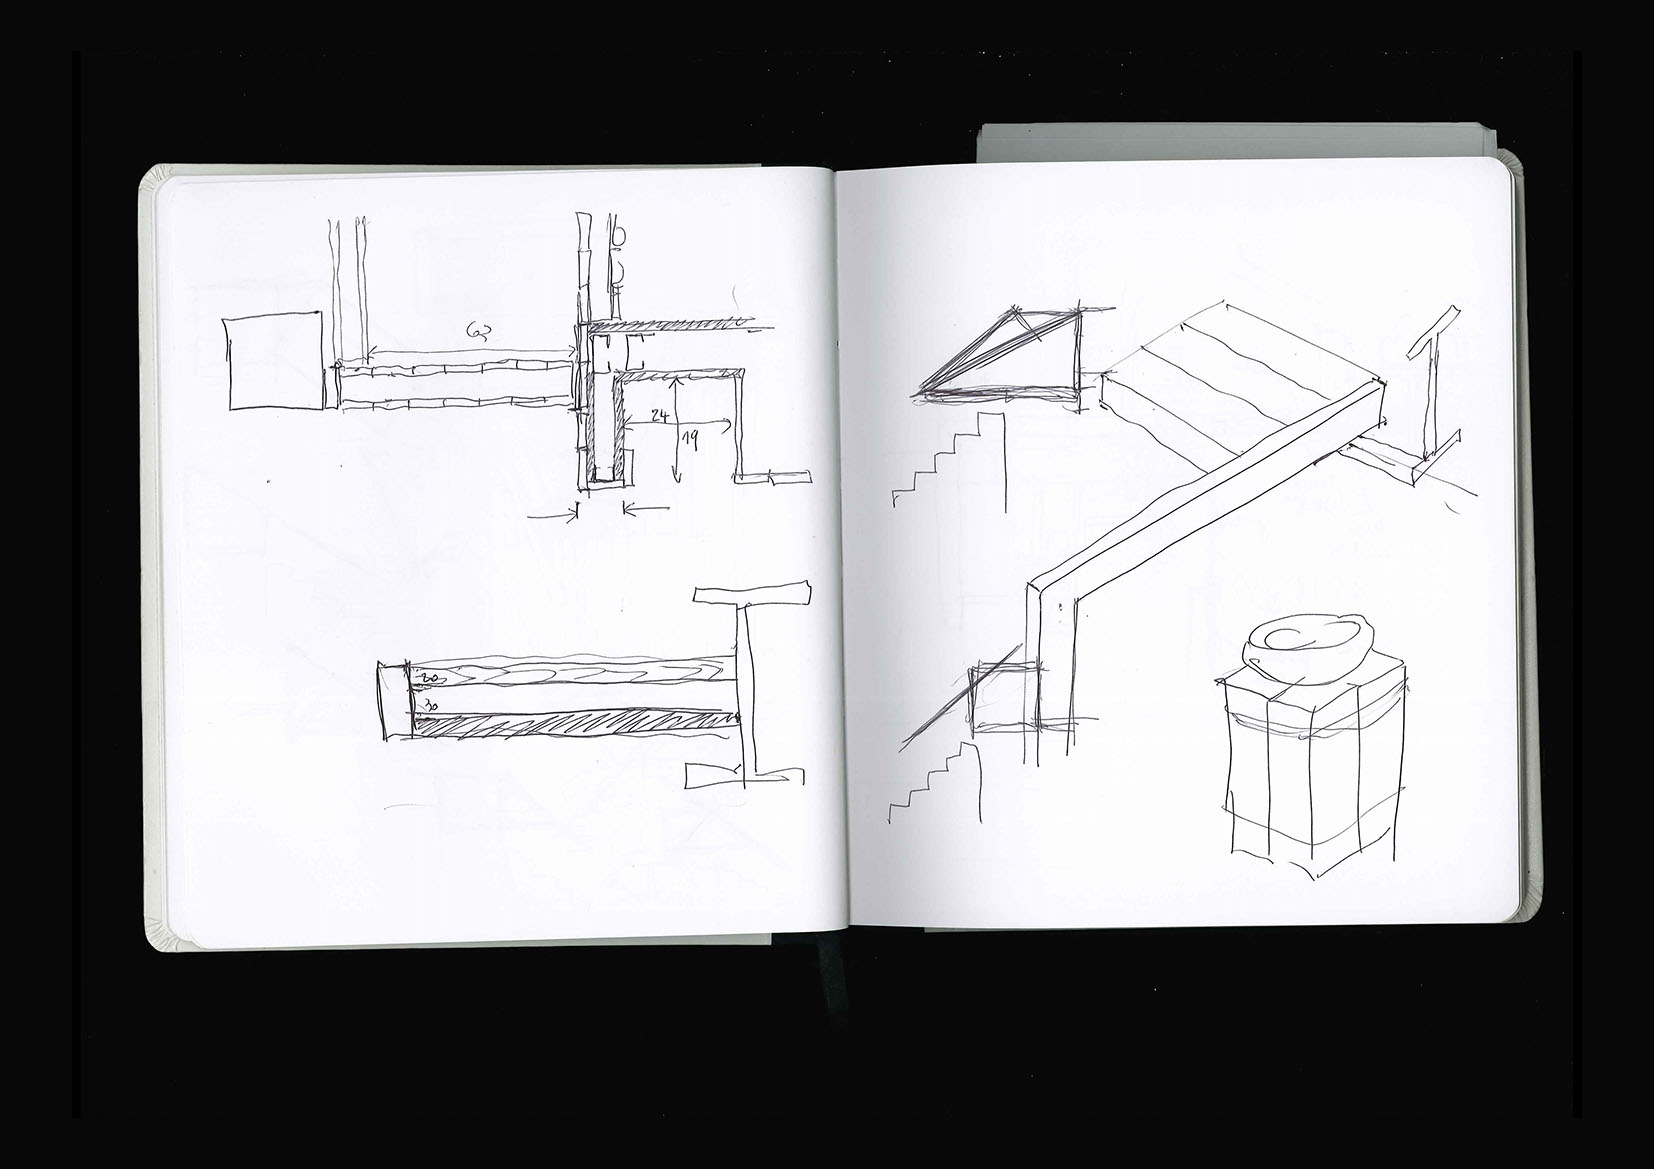 62
24
19
20
30